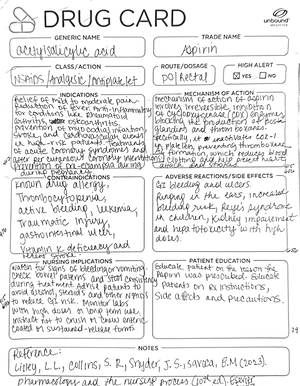 DRUG CARD
unbound
MEDICINE
GENERIC NAME
TRADE NAME
acetylsalicylic acid
Aspirin
CLASS/ACTION
ROUTE/DOSAGE
HIGH ALERT
NSAIDS Analgesic/Antiplatelet
PO/Rectal
YES
NO
INDICATIONS
Relief of mild to moderate pain.
Reduction of fever. Anti-inflammatory
for conditions like rheumatoid
arthritis, osteoarthritis.
prevention of myocardial infarction,
stroke, and cardiovascular events
in high-risk patients. Treatments
for acute coronary syndromes and
after percutaneous coronary intervention
prevention of preeclampsia during
during pregnancy.
MECHANISM OF ACTION
mechanism of action of aspirin
involves irreversible inhibition
of cyclooxygenase (COX) enzymes
blocking the production of prosta-
glandins and thromboxane.
specifically, it inactivates COX-1
in platelets, prevents thromboxane
formation, which reduces blood
clotting and help prevent heart
attack and stroke
CONTRAINDICATIONS
Known drug allergy,
Thrombocytopenia,
active bleeding, leukemia,
Traumatic injury,
gastrointestinal ulcer,
vitamin K deficiency and
recent stroke
ADVERSE REACTIONS/SIDE EFFECTS
GI bleeding and ulcers.
Ringing in the ears, increased
bleeding risk, Reye's syndrome
in children, kidney impairment
and hepatotoxicity with high
doses.
NURSING IMPLICATIONS
Watch for signs of bleeding or vomiting,
check
patients and
during treatment. Advise patients to
avoid alcohol, steroids and other NSAIDS
to reduce GI risk. Monitor labs
with high doses or long term use.
Instruct not to crush or chew enteric
coated or sustained-release forms
PATIENT EDUCATION
Educate patient on the reason the
Aspirin was prescribed. Educate
patients on Rx instructions,
side effects and precautions.
NOTES
Reference:
Lilley, L.L., Collins, S. R., Snyder, J. S., Savoca, E.M (2023).
pharmacology and the nursing process (10th ed). Elsevier